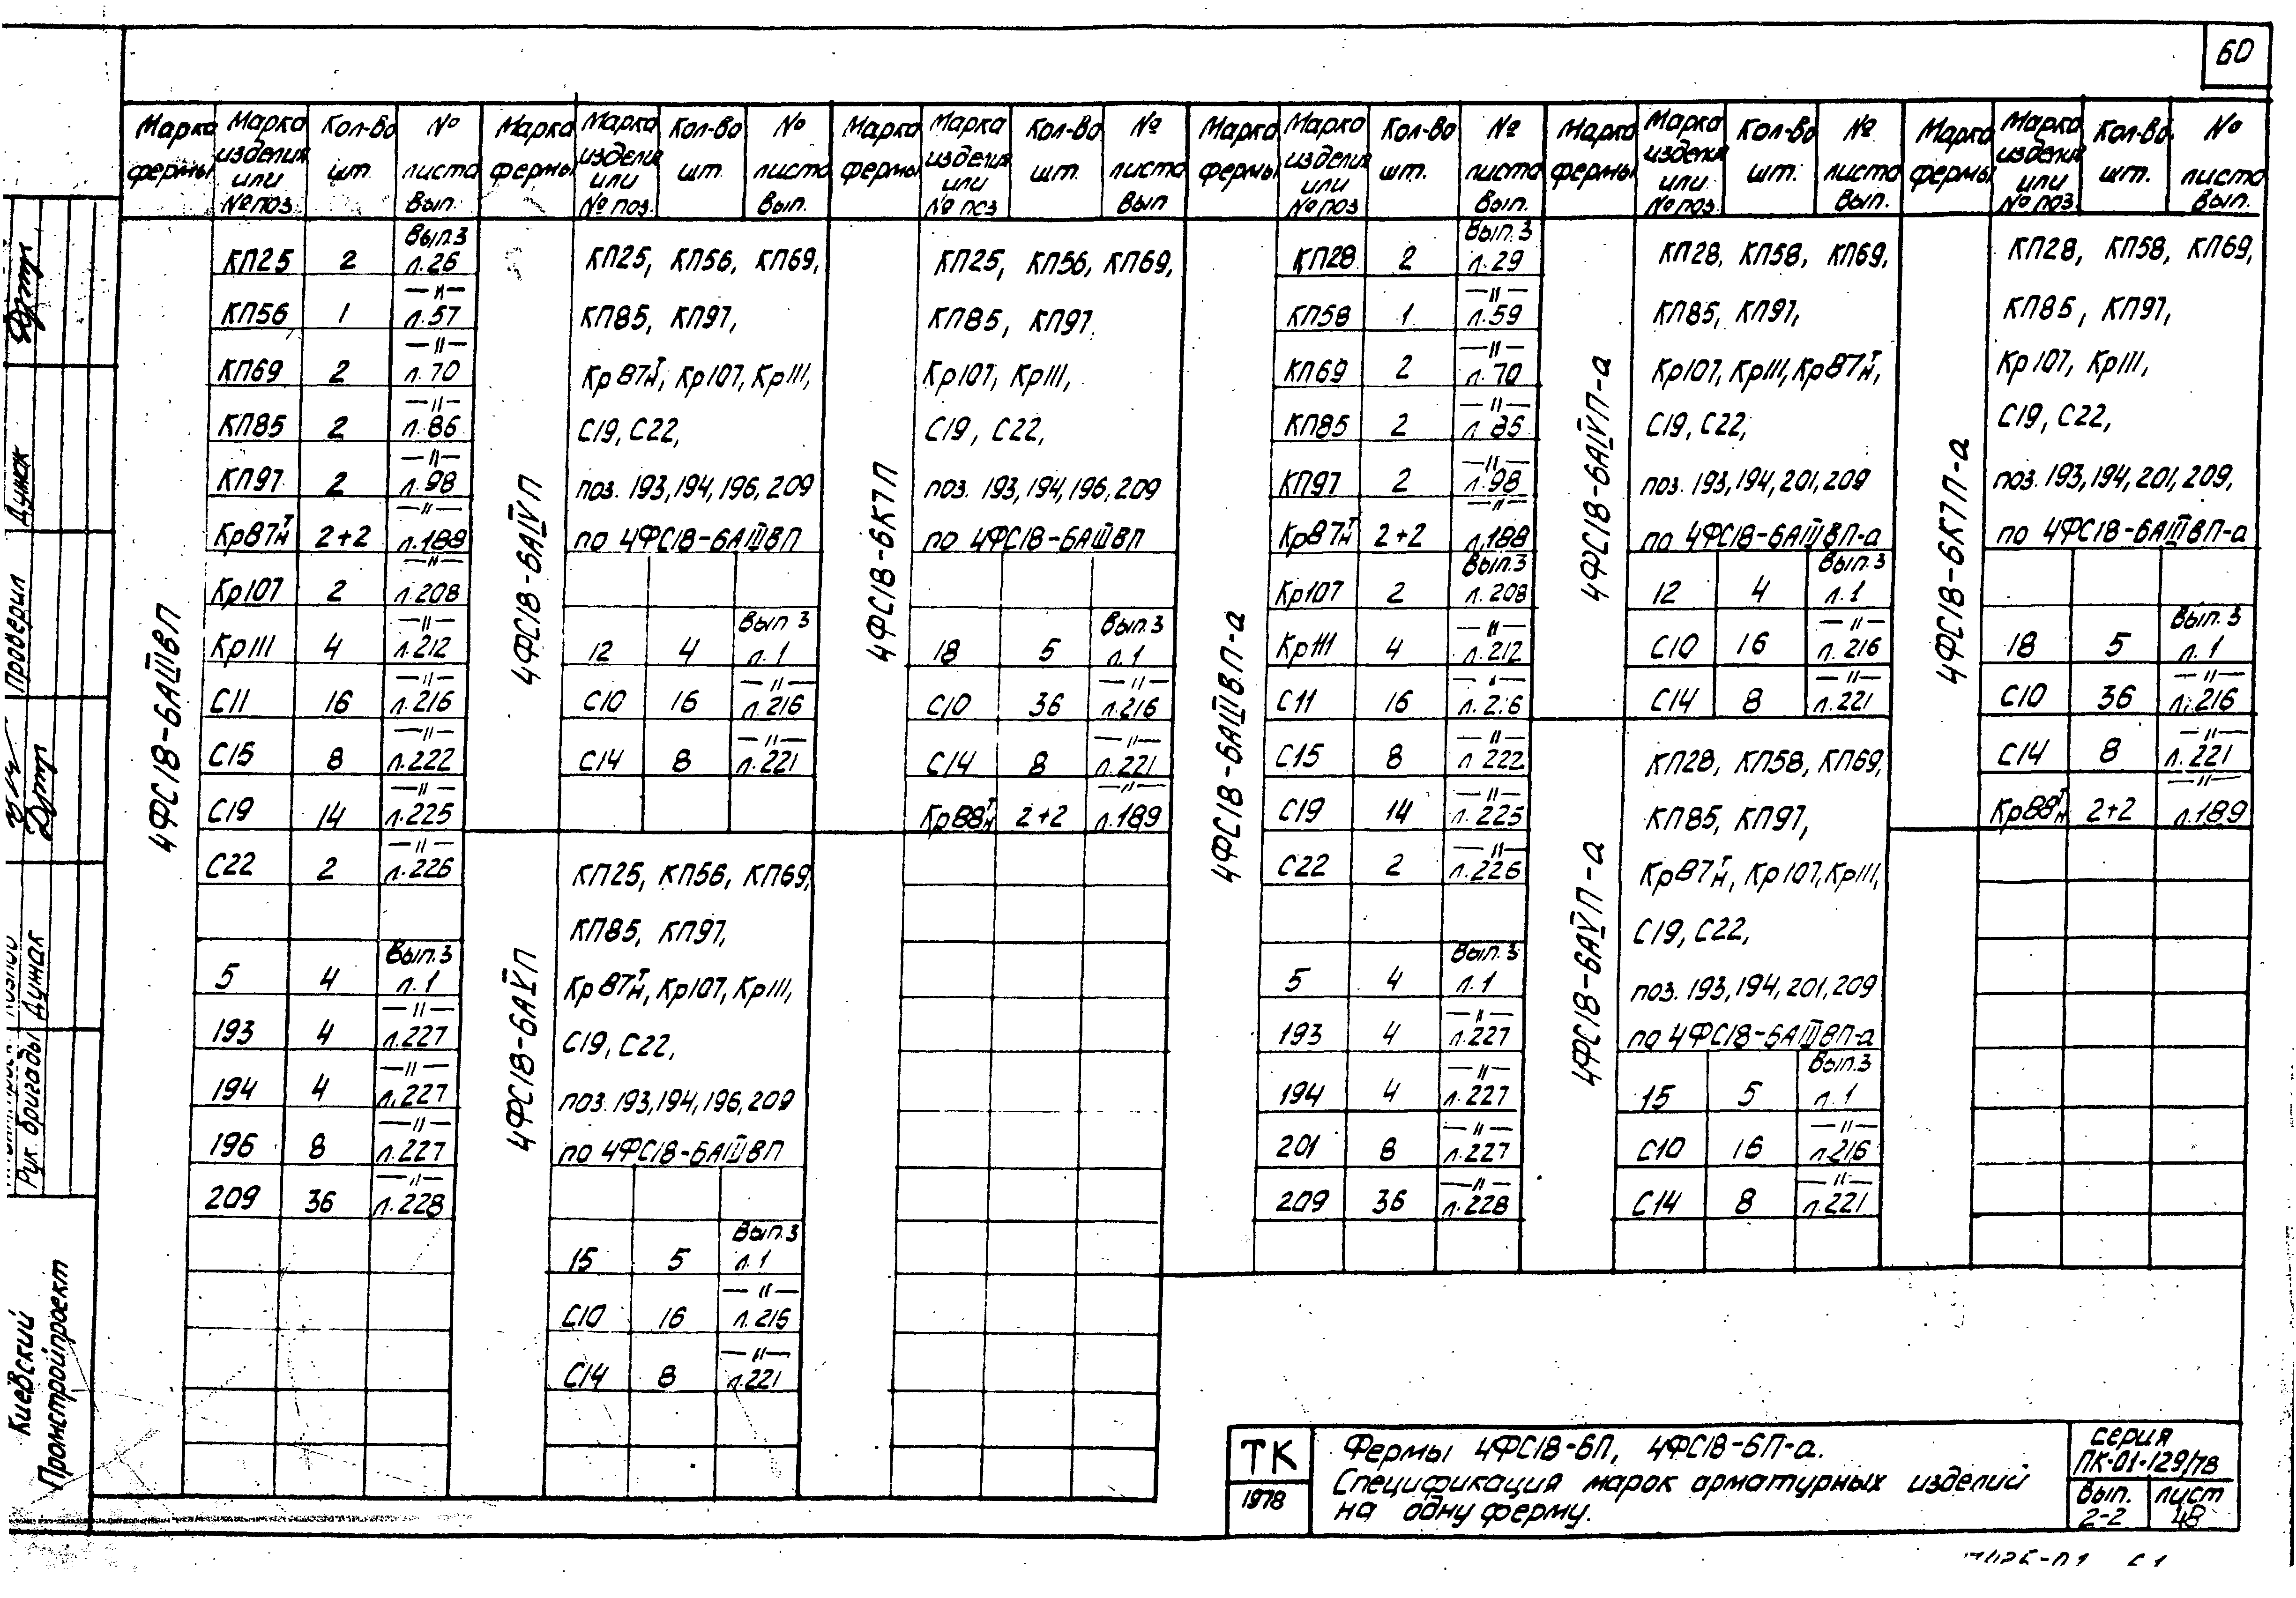 60
Марка фермы | Марка изделия или № поз. | Кол-во шт. | № листа Вып.
4ФС18-6АIIIВП
КП25 2 Вып.3 л.26
КП56 1 —"— л.57
КП69 2 —"— л.70
КП85 2 —"— л.86
КП97 2 —"— л.98
Кр87т/н 2+2 —"— л.188
Кр107 2 —"— л.208
Кр111 4 —"— л.212
С11 16 —"— л.216
С15 8 —"— л.222
С19 14 —"— л.225
С22 2 —"— л.226
5 4 Вып.3 л.1
193 4 —"— л.227
194 4 —"— л.227
196 8 —"— л.227
209 36 —"— л.228
Марка фермы | Марка изделия или № поз. | Кол-во шт. | № листа Вып.
4ФС18-6АIVП
КП25, КП56, КП69,
КП85, КП97,
Кр87т/н, Кр107, Кр111,
С19, С22,
поз. 193,194,196,209
по 4ФС18-6АIIIВП
12 4 Вып 3 л.1
С10 16 —"— л.216
С14 8 —"— л.221
4ФС18-6АVП
КП25, КП56, КП69,
КП85, КП97,
Кр87т/н, Кр107, Кр111,
С19, С22,
поз. 193,194,196,209
по 4ФС18-6АIIIВП
15 5 Вып.3 л.1
С10 16 —"— л.216
С14 8 —"— л.221
Марка фермы | Марка изделия или № поз | Кол-во шт. | № листа Вып
4ФС18-6К7П
КП25, КП56, КП69,
КП85, КП97.
Кр107, Кр111,
С19, С22,
поз. 193,194,196,209
по 4ФС18-6АIIIВП
18 5 Вып.3 л.1
С10 36 —"— л.216
С14 8 —"— л.221
Кр88т/н 2+2 —"— л.189
Марка фермы | Марка изделия или № поз | Кол-во шт. | № листа Вып.
4ФС18-6АIIIВП-а
КП28 2 Вып.3 л.29
КП58 1 —"— л.59
КП69 2 —"— л.70
КП85 2 —"— л.86
КП97 2 —"— л.98
Кр87т/н 2+2 —"— л.188
Кр107 2 Вып.3 л.208
Кр111 4 —"— л.212
С11 16 —"— л.216
С15 8 —"— л 222
С19 14 —"— л.225
С22 2 —"— л.226
5 4 Вып.3 л.1
193 4 —"— л.227
194 4 —"— л.227
201 8 —"— л.227
209 36 —"— л.228
Марка фермы | Марка изделия или № поз. | Кол-во шт. | № листа Вып.
4ФС18-6АIVП-а
КП28, КП58, КП69,
КП85, КП97,
Кр107, Кр111, Кр87т/н,
С19, С22,
поз. 193,194,201,209
по 4ФС18-6АIIIВП-а
12 4 Вып.3 л.1
С10 16 —"— л.216
С14 8 —"— л.221
4ФС18-6АVП-а
КП28, КП58, КП69,
КП85, КП97,
Кр87т/н, Кр107, Кр111,
С19, С22,
поз. 193,194,201,209
по 4ФС18-6АIIIВП-а
15 5 Вып.3 л.1
С10 16 —"— л.216
С14 8 —"— л.221
Марка фермы | Марка изделия или № поз. | Кол-во шт. | № листа Вып.
4ФС18-6К7П-а
КП28, КП58, КП69,
КП85, КП97,
Кр107, Кр111,
С19, С22,
поз. 193,194,201,209,
по 4ФС18-6АIIIВП-а
18 5 Вып.3 л.1
С10 36 —"— л.216
С14 8 —"— л.221
Кр88т/н 2+2 —"— л.189
Проверил Думак
Рук. бригады Думак
Киевский
Промстройпроект
ТК
1978
Фермы 4ФС18-6П, 4ФС18-6П-а.
Спецификация марок арматурных изделий
на одну ферму.
серия
ПК-01-129/78
Вып. 2-2
лист 48